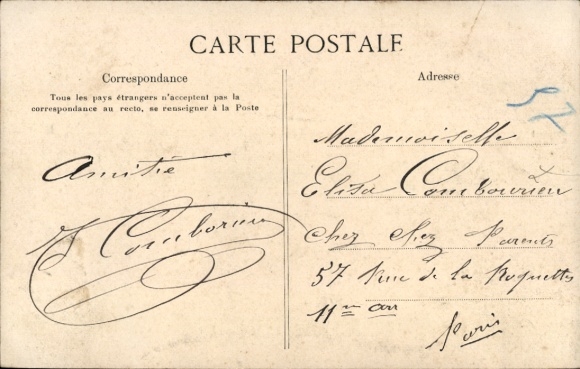 CARTE POSTALE
Correspondance
Tous les pays étrangers n'acceptent pas la
correspondance au recto, se renseigner à la Poste
Amitié
Adresse
57
Mademoiselle
Elisa Combourieu
Chez chez Parents
57 Rue de la Roquette
11me arr
Paris